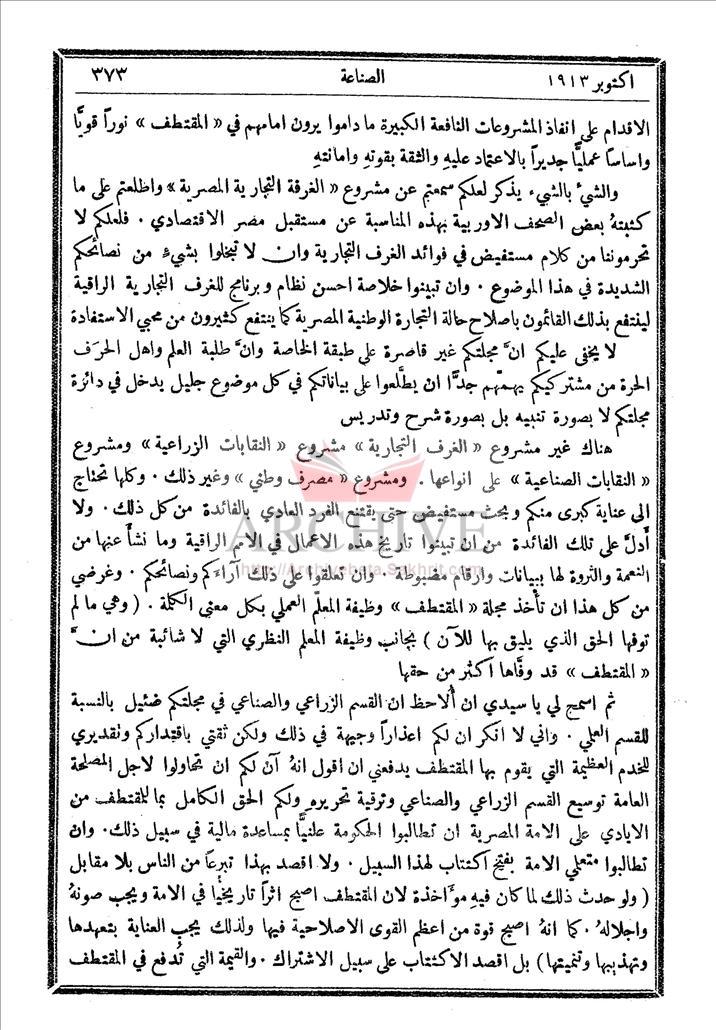 اكتوبر ١٩١٣ الصناعة ٣٧٣
الاقدام على انفاذ المشروعات النافعة الكبيرة ما داموا يرون امامهم في « المقتطف » نوراً قويًّا
واساساً عمليًّا جديراً بالاعتماد عليهِ والثقة بقوتهِ وامانتهِ
والشيءُ بالشيء يذكر لعلكم سمعتم عن مشروع « الغرفة التجارية المصرية » واطلعتم على ما
كتبتهُ بعض الصحف الاوربية بهذه المناسبة عن مستقبل مصر الاقتصادي . فلعلكم لا
تحرموننا من كلام مستفيض في فوائد الغرف التجارية وان لا تبخلوا بشيءٍ من نصائحكم
الشديدة في هذا الموضوع . وان تبينوا خلاصة احسن نظام وبرنامج للغرف التجارية الراقية
لينتفع بذلك القائمون باصلاح حالة التجارة الوطنية المصرية كما ينتفع كثيرون من محبي الاستفادة
لا يخفى عليكم انَّ مجلتكم غير قاصرة على طبقة الخاصة وانَّ طلبة العلم واهل الحرَف
الحرة من مشتركيكم يهمّهم جدًّا ان يطَّلعوا على بياناتكم في كل موضوع جليل يدخل في دائرة
مجلتكم لا بصورة تنبيه بل بصورة شرح وتدريس
هناك غير مشروع « الغرف التجارية » مشروع « النقابات الزراعية » ومشروع
« النقابات الصناعية » على انواعها . ومشروع « مصرف وطني » وغير ذلك . وكلها تحتاج
الى عناية كبرى منكم وبحث مستفيض حتى يقتنع الفرد العادي بالفائدة من كل ذلك . ولا
أَدلَّ على تلك الفائدة من ان تبينوا تاريخ هذه الاعمال في الامم الراقية وما نشأَ عنها من
النعمة والثروة لها ببيانات وارقام مضبوطة . وان تعلقوا على ذلك آراءَكم ونصائحكم . وغرضي
من كل هذا ان تأخذ مجلة « المقتطف » وظيفة المعلّم العملي بكل معنى الكلمة . ( وهي ما لم
توفها الحق الذي يليق بها للآن ) بجانب وظيفة المعلم النظري التي لا شائبة من انَّ
« المقتطف » قد وفَّاها اكثر من حقها
ثم اسمح لي يا سيدي ان أُلاحظ ان القسم الزراعي والصناعي في مجلتكم ضئيل بالنسبة
للقسم العلمي . واني لا انكر ان لكم اعذاراً وجيهة في ذلك ولكن ثقتي باقتداركم وتقديري
للخدم العظيمة التي يقوم بها المقتطف يدفعني ان اقول انهُ آن لكم ان تحاولوا لاجل المصلحة
العامة توسيع القسم الزراعي والصناعي وترقية تحريرهِ ولكم الحق الكامل بما للمقتطف من
الايادي على الامة المصرية ان تطالبوا الحكومة علنيًّا بمساعدة مالية في سبيل ذلك . وان
تطالبوا متعلمي الامة بفتح اكتتاب لهذا السبيل . ولا اقصد بهذا تبرعاً من الناس بلا مقابل
( ولو حدث ذلك لما كان فيهِ مؤَاخذة لان المقتطف اصبح اثراً تاريخيًّا في الامة ويجب صونهُ
واجلالهُ . كما انهُ اصبح قوة من اعظم القوى الاصلاحية فيها ولذلك يجب العناية بتعهدها
وتهذيبها وتنميتها ) بل اقصد الاكتتاب على سبيل الاشتراك . والقيمة التي تُدفع في المقتطف
ARCHIVE
http://Archivebeta.Sakhrit.com